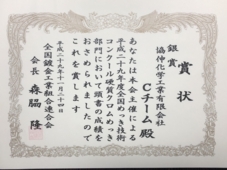 賞状
銀賞
協伸化学工業有限会社
Cチーム殿
あなたは本会主催による
平成二十九年度全国めっき技術
コンクール硬質クロムめっき
部門において頭書の成績を
おさめられましたので
これを賞します
平成二十九年十一月二十四日
全国鍍金工業組合連合会
会長 森脇隆